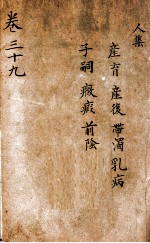 人集
産育 産後 帶濁 乳病
子嗣 癥瘕 前陰
卷三十九